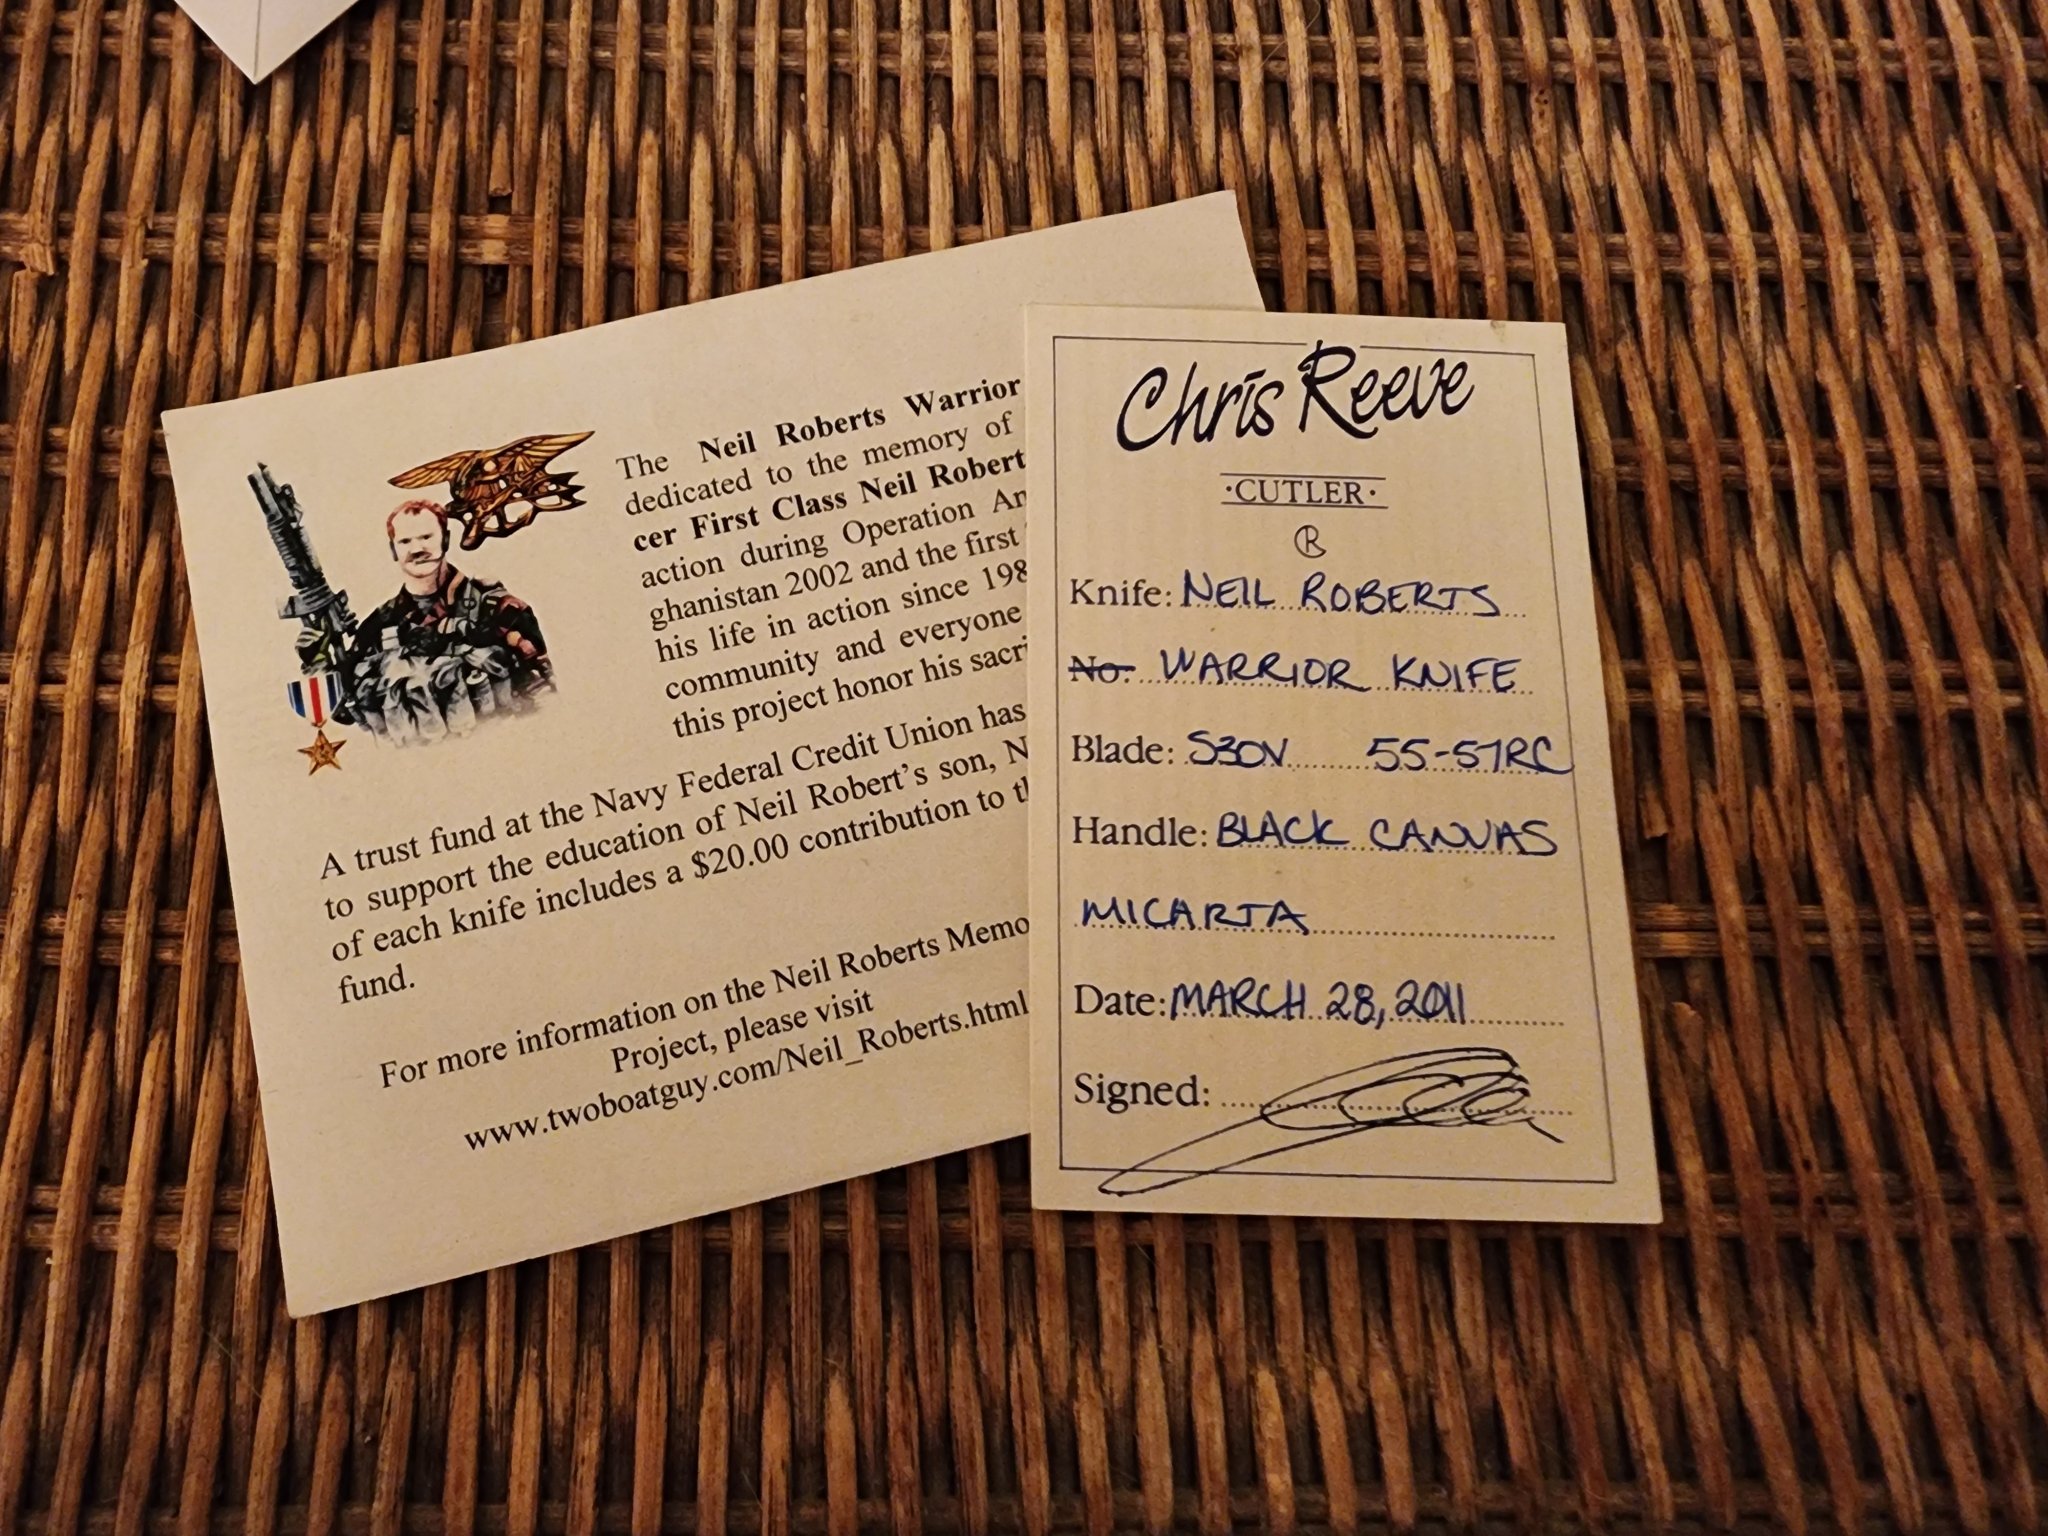 The Neil Roberts Warrior
dedicated to the memory of
cer First Class Neil Robert
action during Operation An
ghanistan 2002 and the first
his life in action since 198
community and everyone
this project honor his sacri
A trust fund at the Navy Federal Credit Union has
to support the education of Neil Robert's son, N
of each knife includes a $20.00 contribution to th
fund.
For more information on the Neil Roberts Memo
Project, please visit
www.twoboatguy.com/Neil_Roberts.html
Chris Reeve
·CUTLER·
Knife: NEIL ROBERTS
No. WARRIOR KNIFE
Blade: S30V 55-57RC
Handle: BLACK CANVAS
MICARTA
Date: MARCH 28, 2011
Signed: